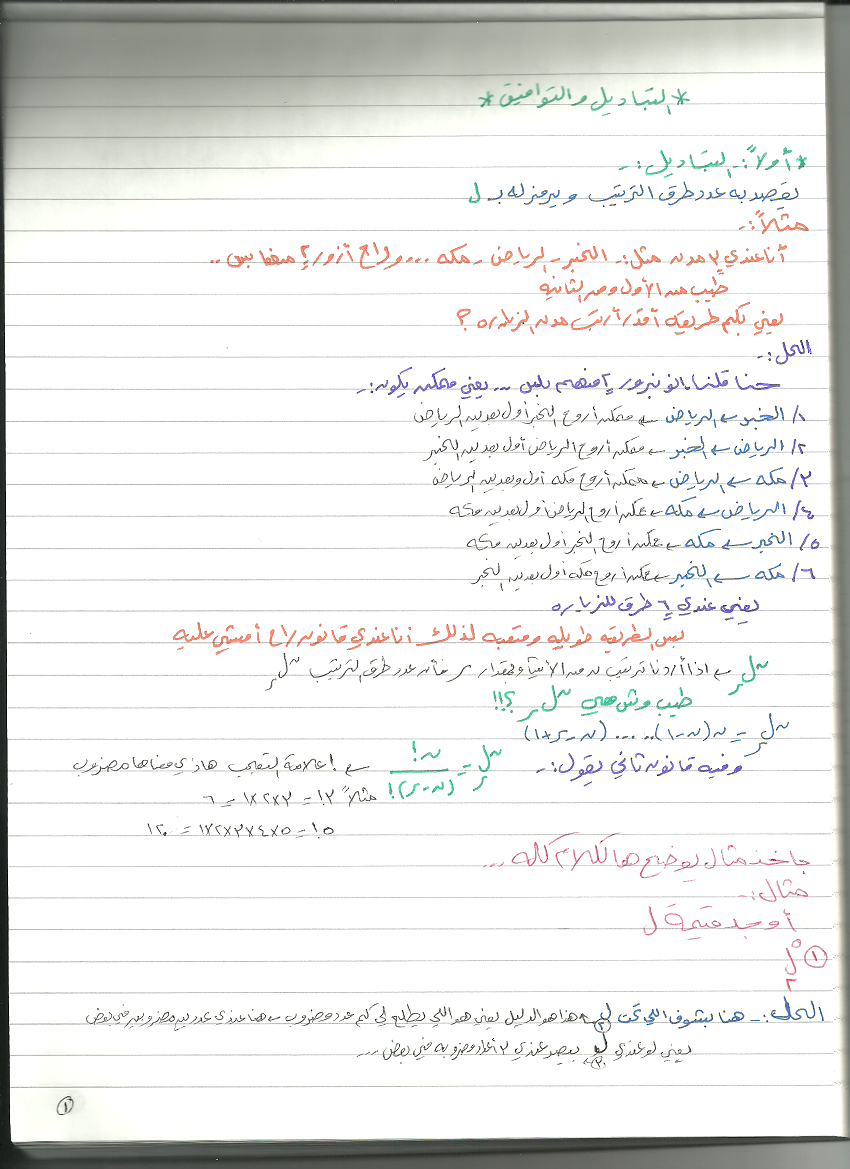 * التباديل والتوافيق *
* أولاً:ـ التباديل :ـ
يقصد به عدد طرق الترتيب ويرمز له بـ ل
مثلاً:ـ
أنا عندي ٣ مدن مثل:ـ الخبر ـ الرياض ـ مكه ... وراح أزور ٢ منها بس ..
طيب من الأول ومن الثانيه
يعني بكم طريقه أقدر أرتب مدن الزياره ؟
الحل:ـ
حنا قلنا بالنا نزور ٢ منهم بس ... يعني ممكن يكون:ـ
١/ الخبر ← الرياض ← ممكن أروح الخبر أول بعدين الرياض
٢/ الرياض ← الخبر ← ممكن أروح الرياض أول بعدين الخبر
٣/ مكه ← الرياض ← ممكن أروح مكه أول وبعدين الرياض
٤/ الرياض ← مكه ← ممكن أروح الرياض أول بعدين مكه
٥/ الخبر ← مكه ← ممكن أروح الخبر أول بعدين مكه
٦/ مكه ← الخبر ← ممكن أروح مكه أول بعدين الخبر
يعني عندي ٦ طرق للزياره
بس الطريقه طويله ومتعبه لذلك أنا عندي قانون راح أمشي عليه
ن ل ر ← اذا أردنا ترتيب ن من الأشياء بمقدار ر فأن عدد طرق الترتيب ن ل ر
طيب وش هي ن ل ر ؟!!
ن ل ر = ن(ن-١)..... (ن-ر+١)
وفيه قانون ثاني يقول:ـ ن ل ر = ن! / (ن-ر)! ← ! علامة التعجب هاذي معناها مضروب
مثلاً ٣! = ٣×٢×١ = ٦
٥! = ٥×٤×٣×٢×١ = ١٢٠
بناخذ مثال يوضح هالكلام كله ...
مثال:ـ
أوجد قيمة ل
١ ٥ ل ٢
الحل:ـ هنا بشوف اللي تحت ل ٢ هذا هو الدليل يعني هو اللي يطلع لي كم عدد مضروب ← هنا عندي عددين مضروبين في بعض
يعني لو عندي ل ٣ بيصير عندي ٣ أعداد مضروبه في بعض ...
١